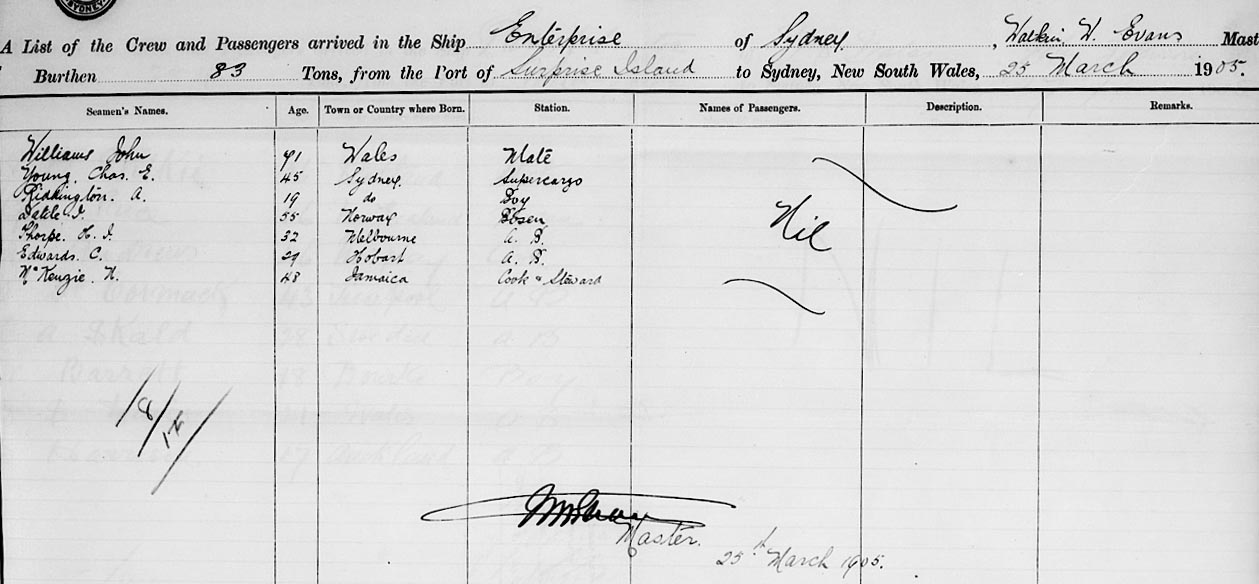 SYDNEY
A List of the Crew and Passengers arrived in the Ship Enterprise of Sydney, W. Evans Mast
Burthen 83 Tons, from the Port of Surprise Island to Sydney, New South Wales, 25 March 1905.
Seamen's Names. Age. Town or Country where Born. Station. Names of Passengers. Description. Remarks.
Williams John 41 Wales Mate
Young, Chas. E. 45 Sydney. Supercargo
Riddington. A. 19 do Boy
55 Norway Bosen
Thorpe. H. J. 32 Melbourne A. B.
Edwards. C. 29 Hobart A. B.
McKenzie. N. 48 Jamaica Cook & Steward
Nil
8/
Master.
25th March 1905.